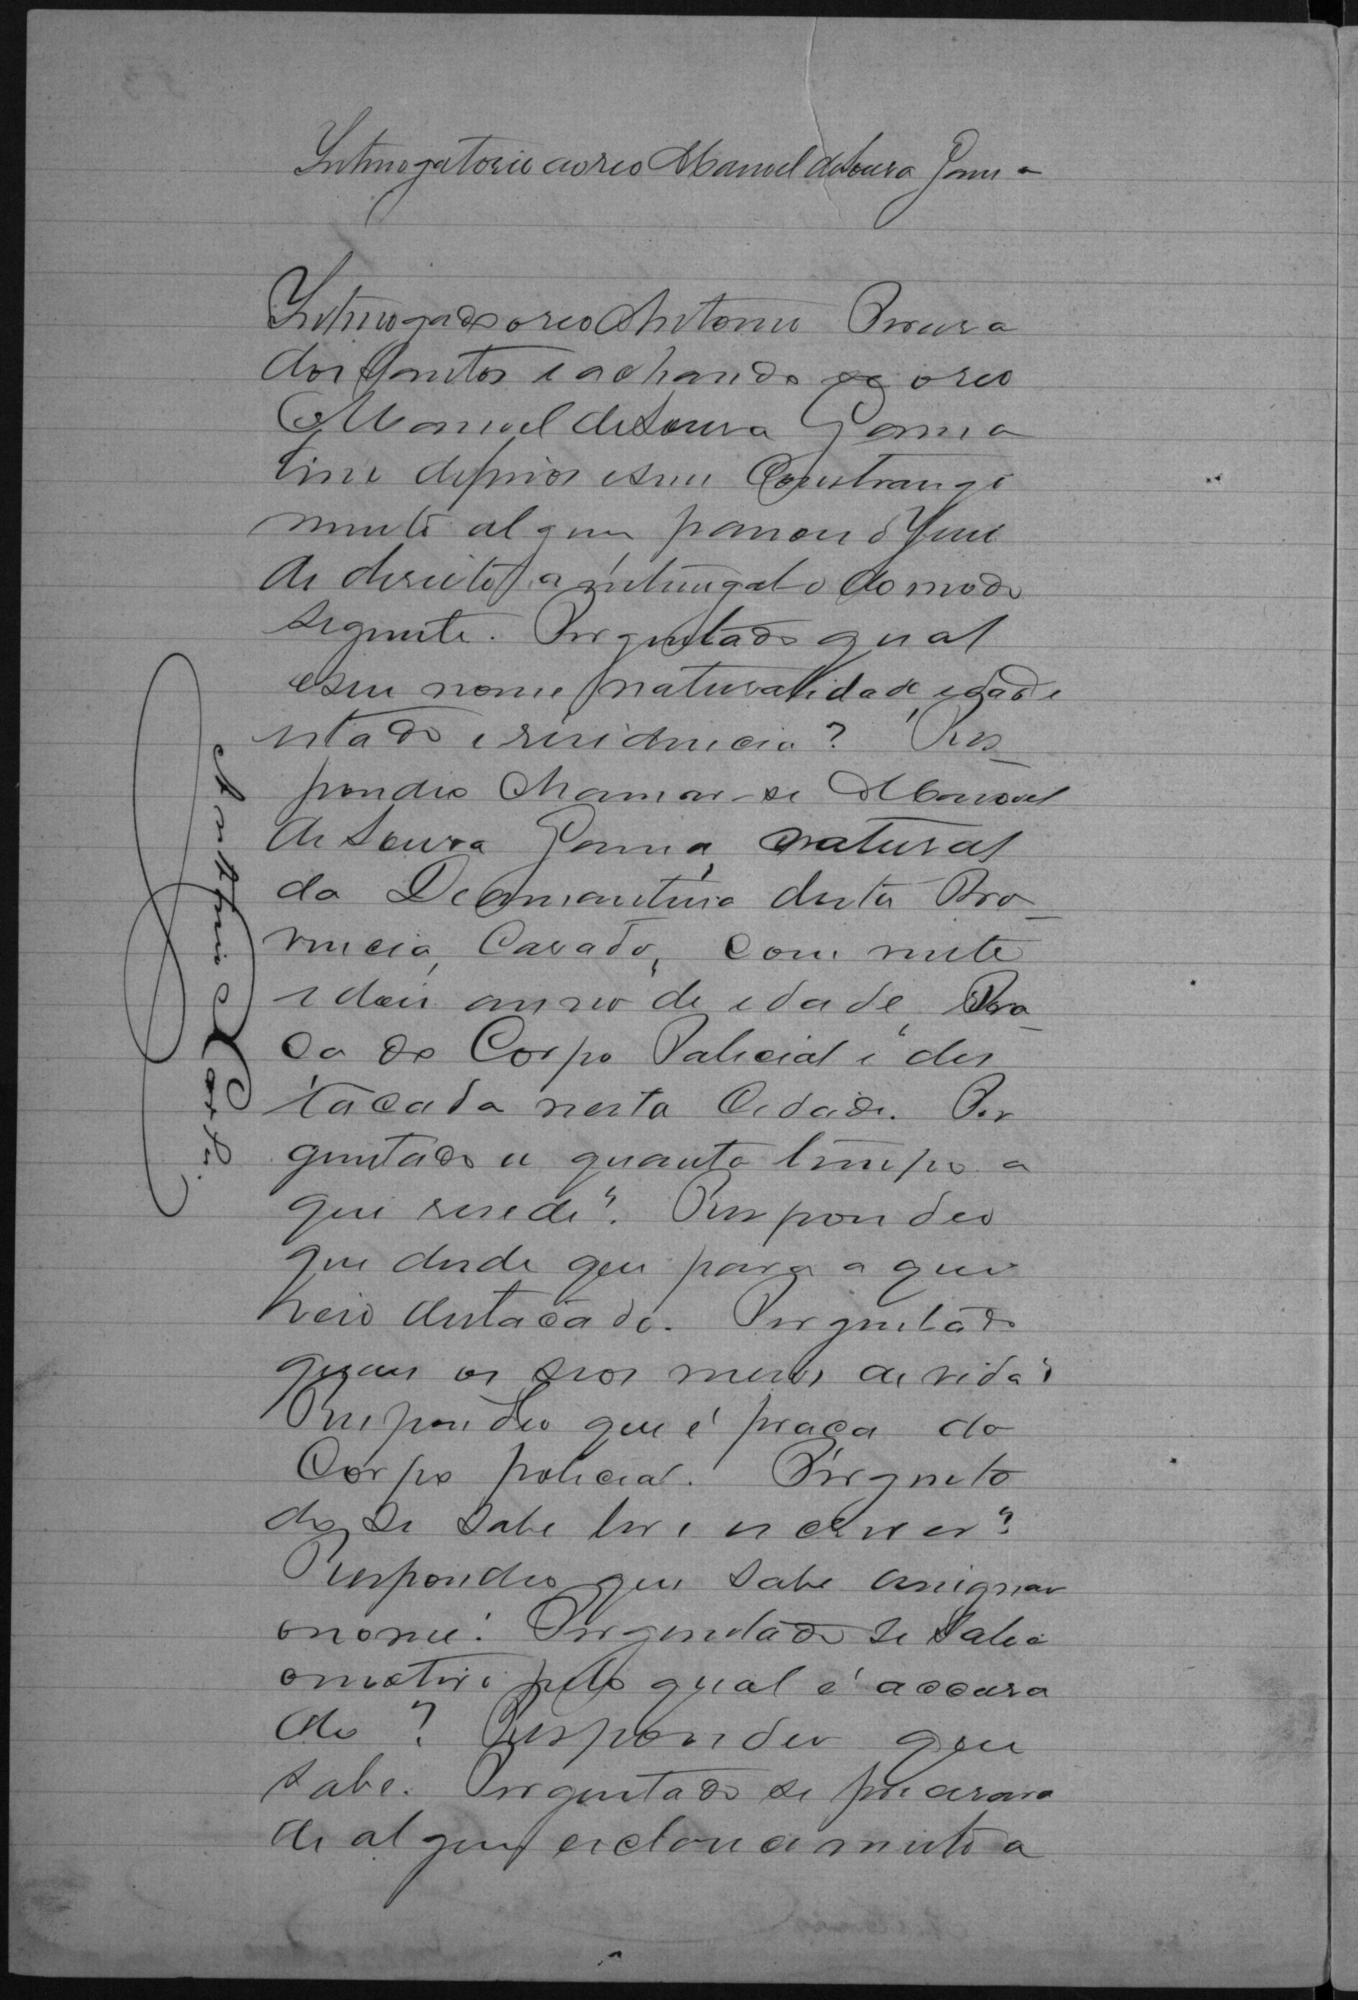 Interrogatorio ao reo Manoel de Souza Gama
Interrogado o reo Antonio Pereira
dos Santos e achando se o reo
Manoel de Souza Gama
livre de ferros e sem constrangi
mento algum passou o Juiz
de direito a interrogal-o do modo
seguinte. Perguntado qual
o seu nome, naturalidade, edade
estado e residencia? Res-
pondeo chamar-se Manoel
de Souza Gama, natural
da Diamantina desta Pro-
vincia, casado, com vinte
e dois annos de edade, Pra-
ça do Corpo Policial e des
tacada nesta Cidade. Per
guntado a quanto tempo a
qui reside? Respondeo
que desde que para aqui
veio destacado. Perguntado
quaes os seos meios de vida?
Respondeo que é praça do
Corpo policial. Pergunta
do se sabe ler e escrever?
Respondeo que sabe assignar
o nome. Perguntado se sabia
o motivo pelo qual é accusa
do? Respondeo que
sabe. Perguntado se precisava
de algum esclarecimento a
Antonio